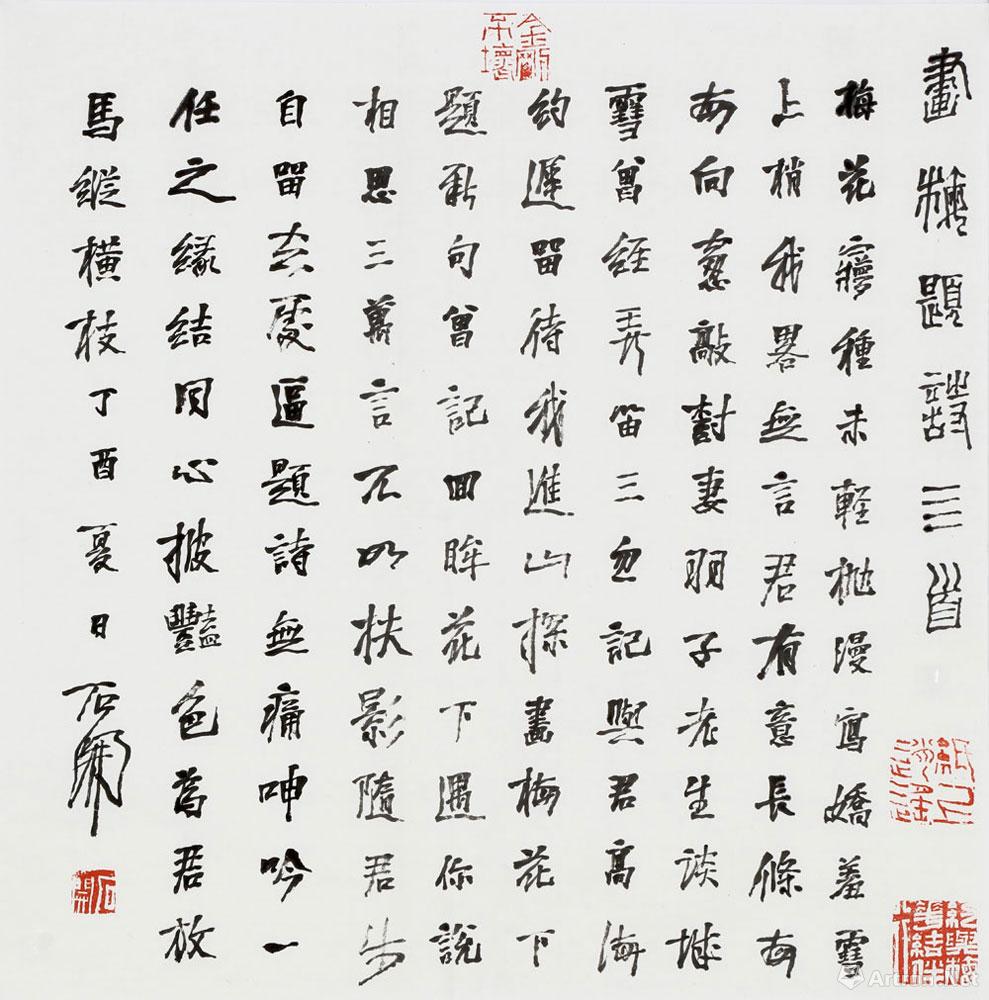 畫題詩三首
梅花㝱種未輕拋漫寫嬌羞雪
上梢我畧無言君有意長條每
每向窻敲妻羽子老生談
雪曾經弄笛三忽記與君高海
約遲留待我進山探畫梅花下
題新句曾記回眸花下遇你說
相思三萬言不如扶影隨君步
自留處逼題詩無痛呻吟一
任之緣結同心披豔色為君放
馬縱橫枝丁酉夏日石開
金剛不壞
石開